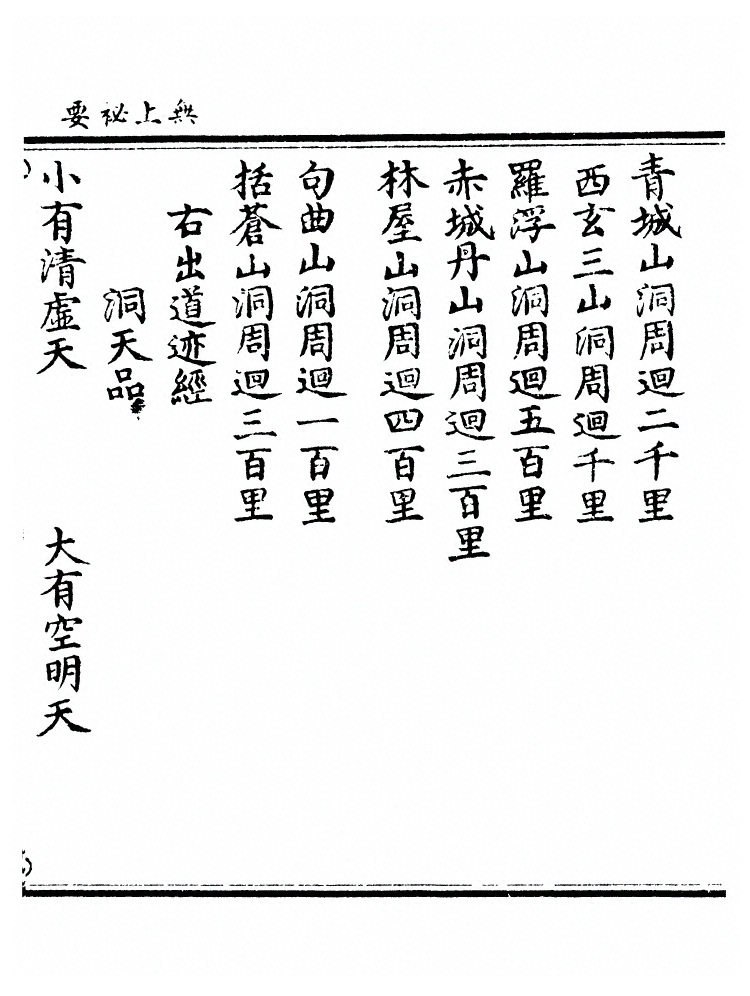 無上祕要
青城山洞周迴二千里
西玄三山洞周迴千里
羅浮山洞周迴五百里
赤城丹山洞周迴三百里
林屋山洞周迴四百里
句曲山洞周迴一百里
括蒼山洞周迴三百里
右出道迹經
洞天品
小有清虛天　大有空明天